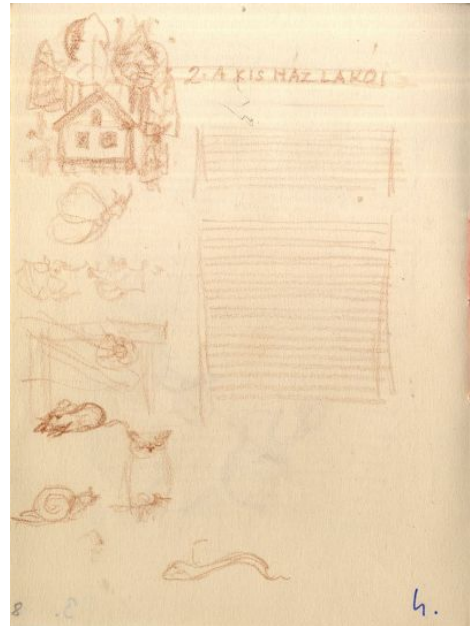 2. A KIS HÁZ LAKÓI
8
.3
4.